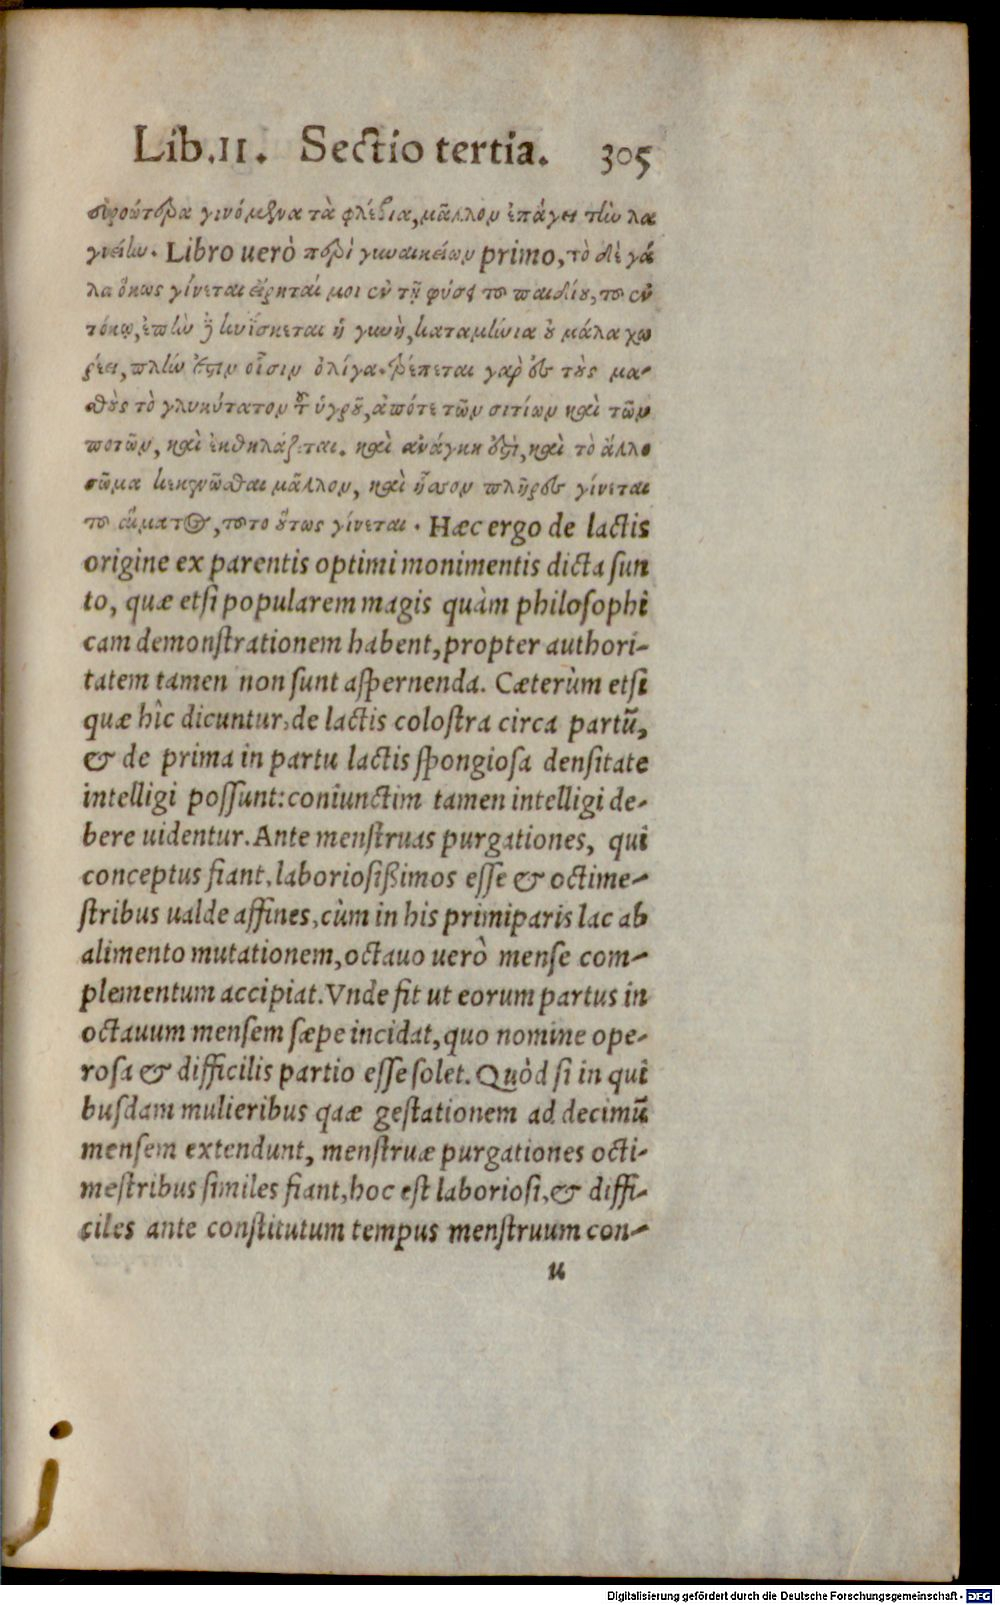 Lib.II. Sectio tertia. 305
εὐροώτερα γινόμενα τὰ φλέβια, μᾶλλον ἐπάγει τὴν λα
γνείην. Libro uerò περὶ γυναικείων primo, τὸ δὲ γά
λα ὅκως γίνεται εἴρηταί μοι ἐν τῇ φύσει τοῦ παιδίου, τοῦ ἐν
τόκῳ, ἐπὴν δὲ κυΐσκεται ἡ γυνὴ, καταμήνια οὐ μάλα χω
ρέει, πλὴν ἔστιν οἷσιν ὀλίγα. τρέπεται γὰρ ἐς τοὺς μα-
ζοὺς τὸ γλυκύτατον τοῦ ὑγροῦ, ἀπότε τῶν σιτίων καὶ τῶν
ποτῶν, καὶ ἐκθηλάζεται. καὶ ἀνάγκη ἐστὶ, καὶ τὸ ἄλλο
σῶμα κεκενῶσθαι μᾶλλον, καὶ ἧσσον πλῆρες γίνεται
τοῦ αἵματος, τοῦτο οὕτως γίνεται. Hæc ergo de lactis
origine ex parentis optimi monimentis dicta sun
to, quæ etsi popularem magis quàm philosophi
cam demonstrationem habent, propter authori-
tatem tamen non sunt aspernenda. Cæterùm etsi
quæ hîc dicuntur, de lactis colostra circa partũ,
& de prima in partu lactis spongiosa densitate
intelligi possunt: coniunctim tamen intelligi de-
bere uidentur. Ante menstruas purgationes, qui
conceptus fiant, laboriosißimos esse & octime-
stribus ualde affines, cùm in his primiparis lac ab
alimento mutationem, octauo uerò mense com-
plementum accipiat. Vnde fit ut eorum partus in
octauum mensem sæpe incidat, quo nomine ope-
rosa & difficilis partio esse solet. Quòd si in qui
busdam mulieribus qaæ gestationem ad decimũ
mensem extendunt, menstruæ purgationes octi-
mestribus similes fiant, hoc est laboriosi, & diffi-
ciles ante constitutum tempus menstruum con-
u
Digitalisierung gefördert durch die Deutsche Forschungsgemeinschaft - DFG